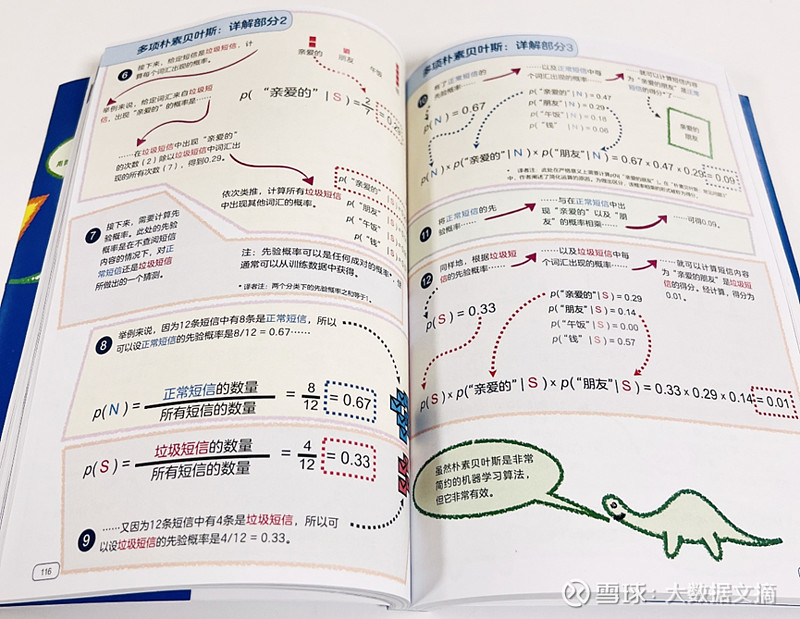 多项朴素贝叶斯：详解部分2
6
接下来，给定短信是垃圾短信，计
算每个词汇出现的概率。
亲爱的
朋友
午饭
举例来说，给定词汇来自垃圾短
信，出现“亲爱的”的概率是……
p( “亲爱的” | S ) = 2/7 = 0.29
……在垃圾短信中出现“亲爱的”
的次数（2）除以垃圾短信中词汇出
现的所有次数（7），得到0.29。
依次类推，计算所有垃圾短信
中出现其他词汇的概率。
p( “亲爱的” | S
p( “朋友” | S
p( “午饭” | S
p( “钱” | S
7
接下来，需要计算先
验概率。此处的先验
概率是在不查阅短信
内容的情况下，对正
常短信还是垃圾短信
所做出的一个猜测。
注：先验概率可以是任何成对的概率*，但
通常可以从训练数据中获得。
* 译者注：两个分类下的先验概率之和等于1。
8
举例来说，因为12条短信中有8条是正常短信，所以
可以设正常短信的先验概率是8/12 = 0.67……
p( N ) = 正常短信的数量/所有短信的数量 = 8/12 = 0.67
p( S ) = 垃圾短信的数量/所有短信的数量 = 4/12 = 0.33
9
……又因为12条短信中有4条是垃圾短信，所以可
以设垃圾短信的先验概率是4/12 = 0.33。
116
多项朴素贝叶斯：详解部分3
10
有了正常短信的
先验概率……
……以及正常短信中每
个词汇出现的概率……
……就可以计算短信内容
为“亲爱的朋友”是正常
短信的得分*了……
p( N ) = 0.67
p( “亲爱的” | N ) = 0.47
p( “朋友” | N ) = 0.29
p( “午饭” | N ) = 0.18
p( “钱” | N ) = 0.06
亲爱的
朋友
p( N ) × p( “亲爱的” | N ) × p( “朋友” | N ) = 0.67 × 0.47 × 0.29 = 0.09
11
将正常短信的先
验概率……
……与在正常短信中出
现“亲爱的”以及“朋
友”的概率相乘……
……可得0.09。
12
同样地，根据垃圾短
信的先验概率……
……以及垃圾短信中每
个词汇出现的概率……
……就可以计算短信内容
为“亲爱的朋友”是垃圾短
信的得分。经计算，得分为
0.01。
p( S ) = 0.33
p( “亲爱的” | S ) = 0.29
p( “朋友” | S ) = 0.14
p( “午饭” | S ) = 0.00
p( “钱” | S ) = 0.57
p( S ) × p( “亲爱的” | S ) × p( “朋友” | S ) = 0.33 × 0.29 × 0.14 = 0.01
虽然朴素贝叶斯是非常
简约的机器学习算法，
但它非常有效。
雪球：大数据文摘